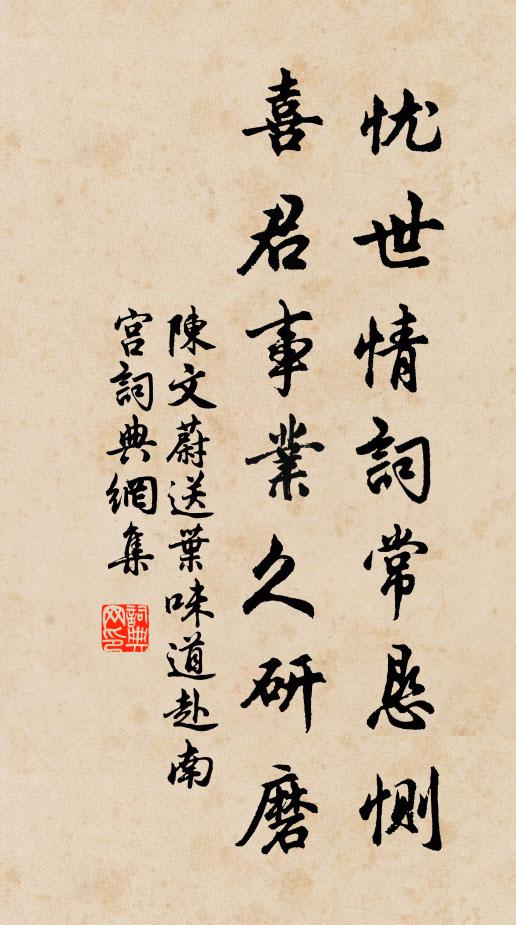 忧世情詞常恳惻
喜君事業久研磨
陳文蔚送葉味道赴南
宫詞典網集
詞典
网印